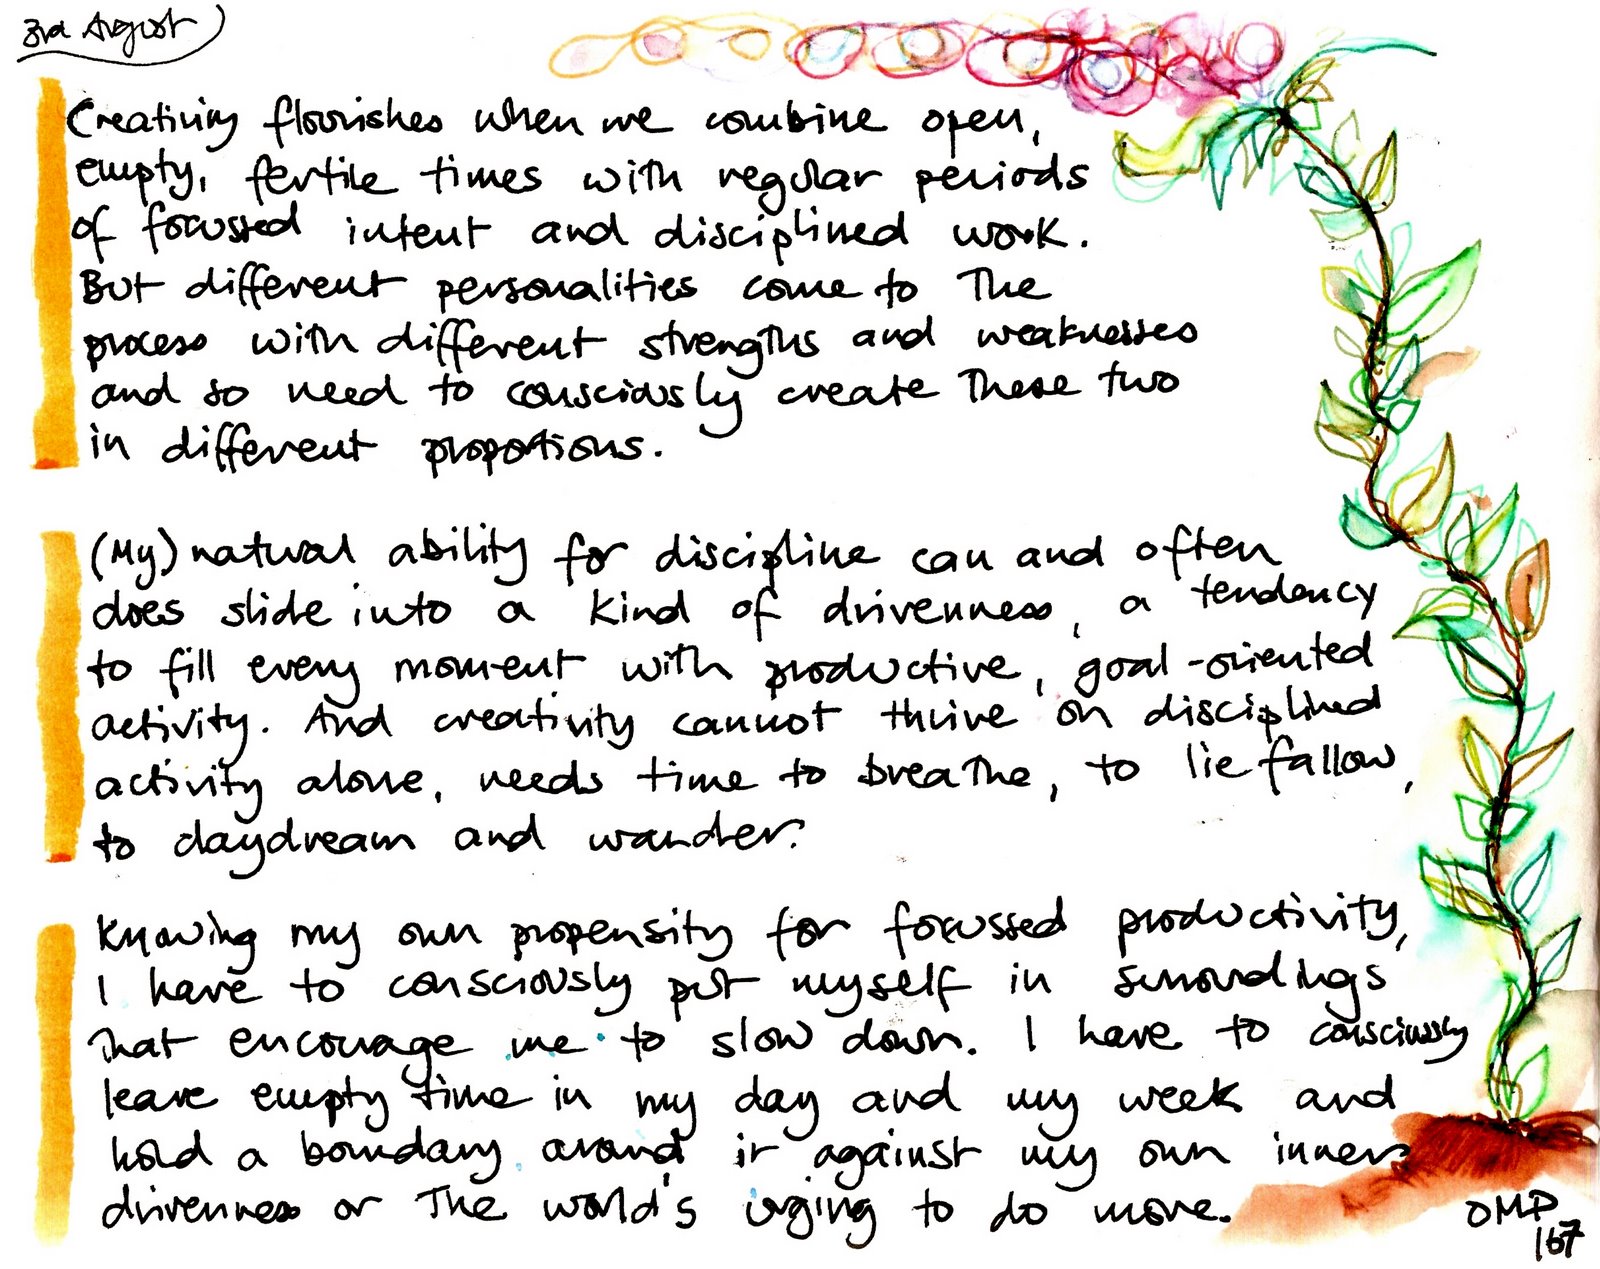 3rd August
Creativity flourishes when we combine open,
empty, fertile times with regular periods
of focussed intent and disciplined work.
But different personalities come to the
process with different strengths and weaknesses
and so need to consciously create these two
in different proportions.
(My) natural ability for discipline can and often
does slide into a kind of drivenness, a tendency
to fill every moment with productive, goal-oriented
activity. And creativity cannot thrive on disciplined
activity alone, needs time to breathe, to lie fallow,
to daydream and wander.
Knowing my own propensity for focussed productivity,
I have to consciously put myself in surroundings
that encourage me to slow down. I have to consciously
leave empty time in my day and my week and
hold a boundary around it against my own inner
drivenness or the world's urging to do more.
OMP
167